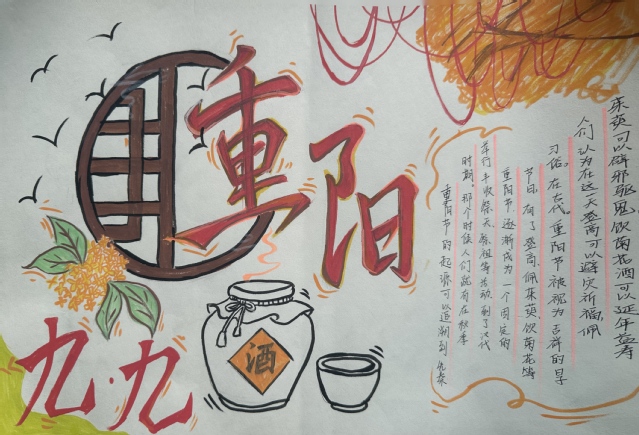 重阳
九·九
酒
重阳节的起源可以追溯到先秦
时期,那个时候人们就有在秋季
举行丰收祭天、祭祖等活动.到了汉代
重阳节逐渐成为一个固定的
节日,有了登高、佩茱萸饮菊花等
习俗。在古代,重阳节被视为吉祥的日子
人们认为在这一天登高可以避灾祈福,佩
茱萸可以辟邪驱鬼,饮菊花酒可以延年益寿